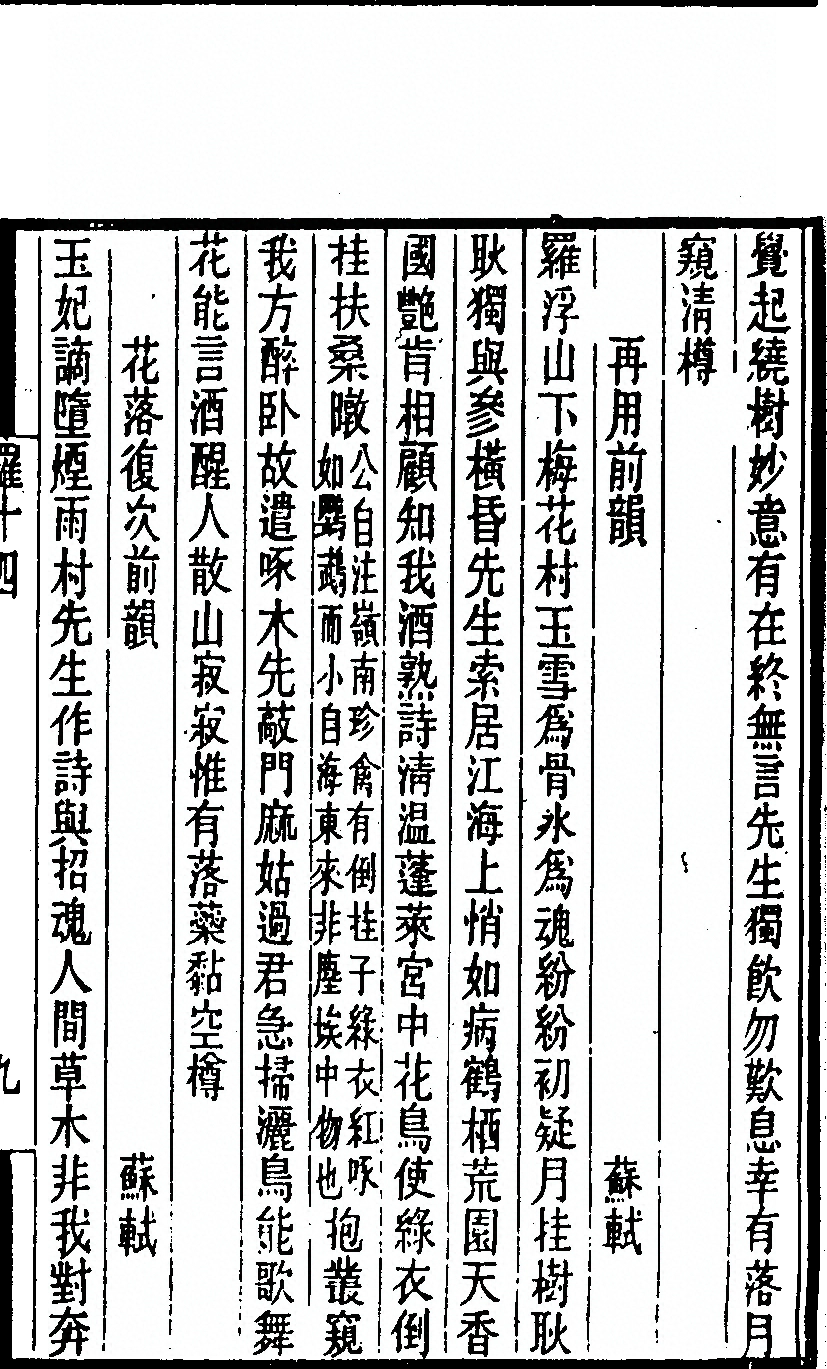 覺起繞樹妙意有在終無言先生獨飲勿歎息幸有落月
窺清樽
再用前韻 蘇軾
羅浮山下梅花村玉雪爲骨氷爲魂紛紛初疑月挂樹耿
耿獨與參橫昏先生索居江海上悄如病鶴栖荒園天香
國艷肯相顧知我酒熟詩清温蓬萊宮中花鳥使綠衣倒
桂扶桑暾公自注嶺南珍禽有倒挂子綠衣紅啄如鸚鵡而小自海東來非塵埃中物也抱叢窺
我方醉卧故遣啄木先敲門麻姑過君急掃灑鳥能歌舞
花能言酒醒人散山寂寂惟有落蘂黏空樽
花落復次前韻 蘇軾
玉妃謫墮煙雨村先生作詩與招魂人間草木非我對奔
羅十四 九